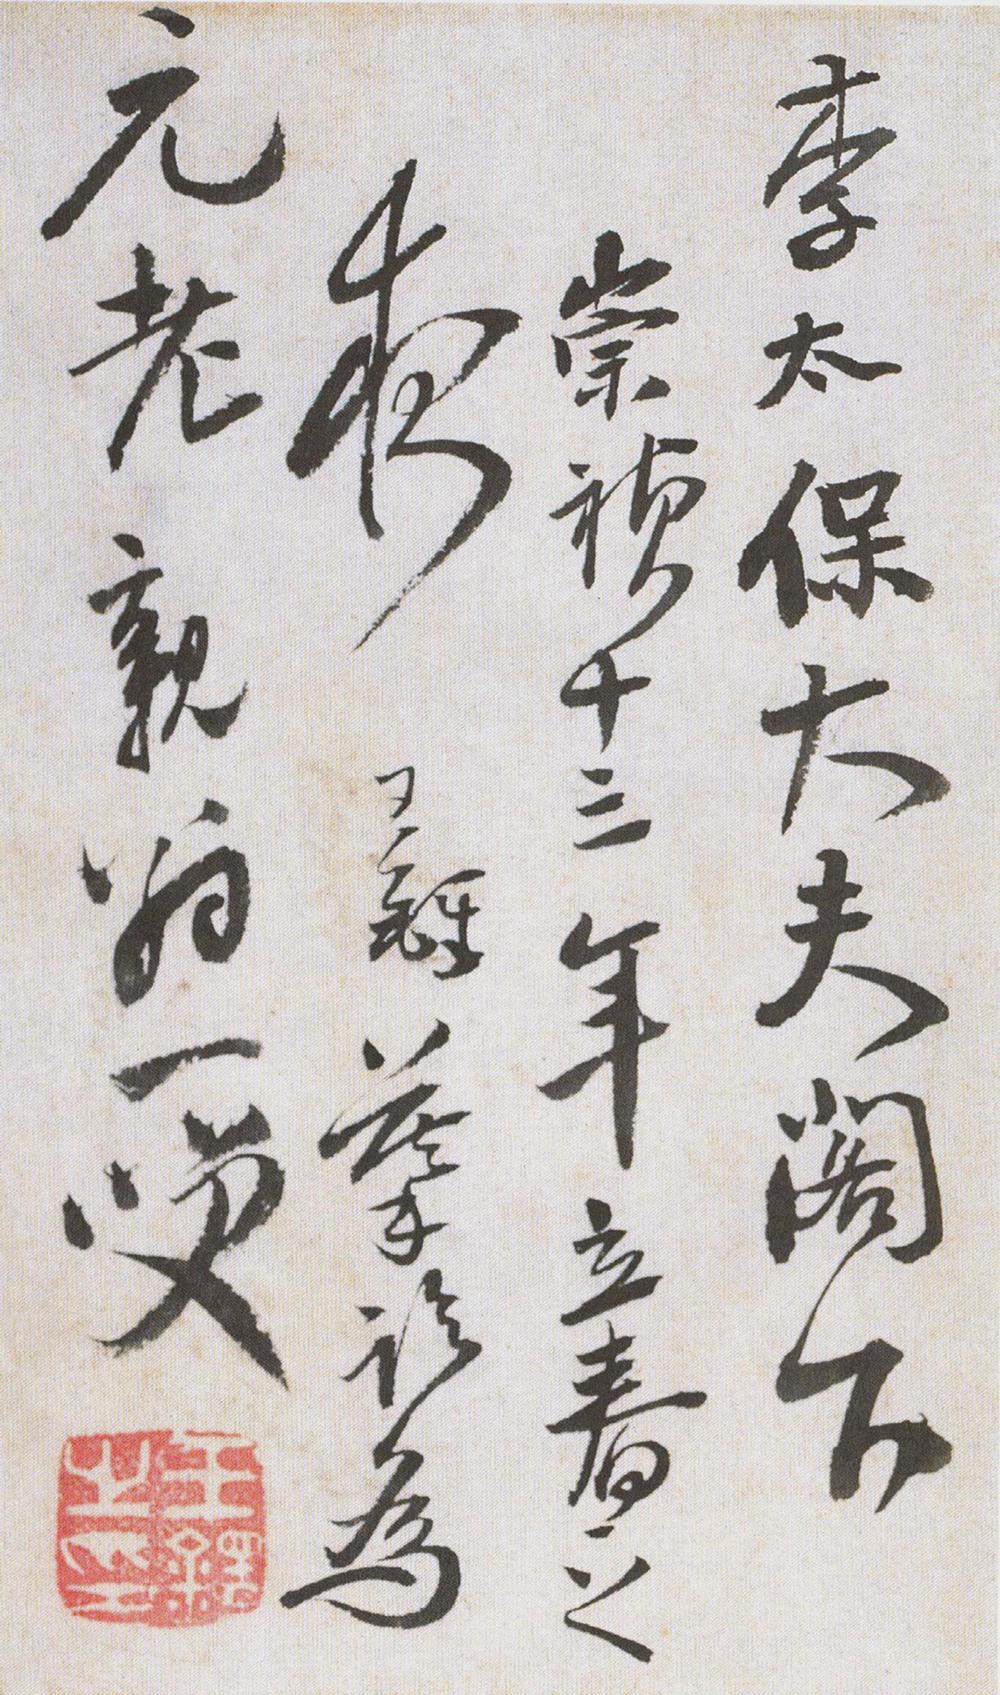 李太保大夫閣下
崇禎十三年立春之
夜 摹 為
元老親翁一笑
王鐸之印